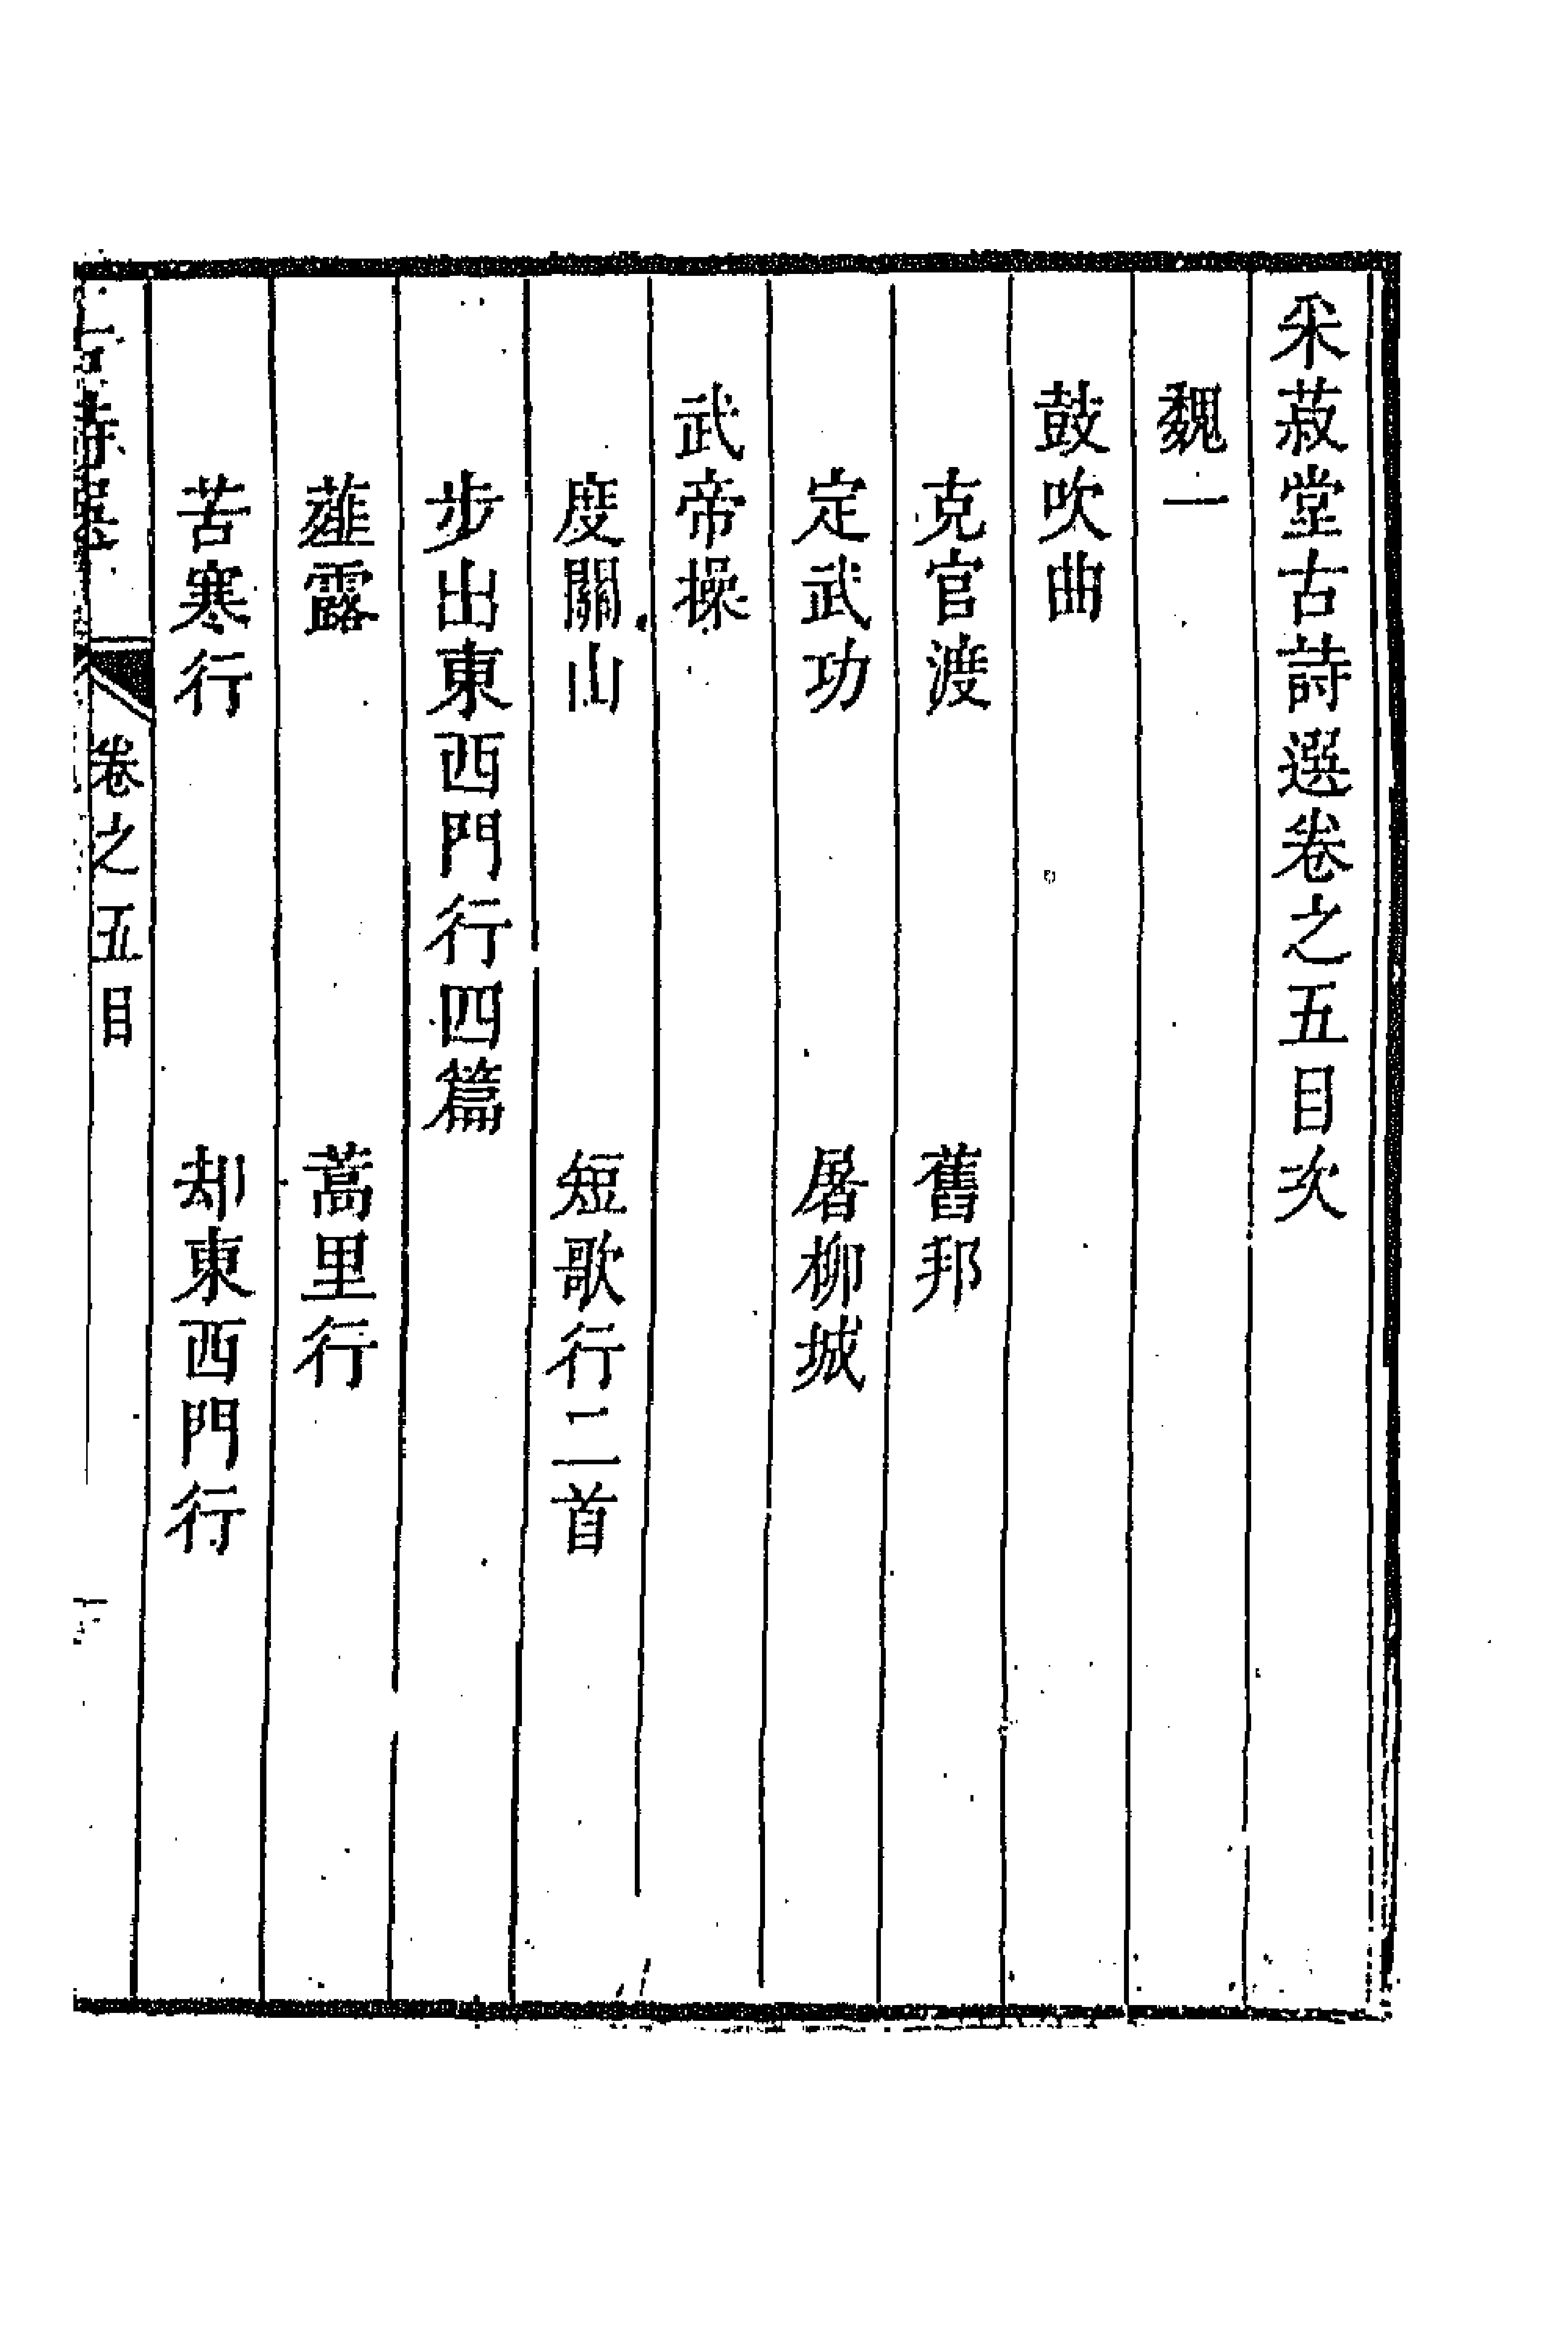 采菽堂古詩選卷之五目次
魏一
鼓吹曲
克官渡　舊邦
定武功　屠柳城
武帝操
度關山　短歌行二首
步出東西門行四篇
薤露　蒿里行
苦寒行　却東西門行
卷之五目